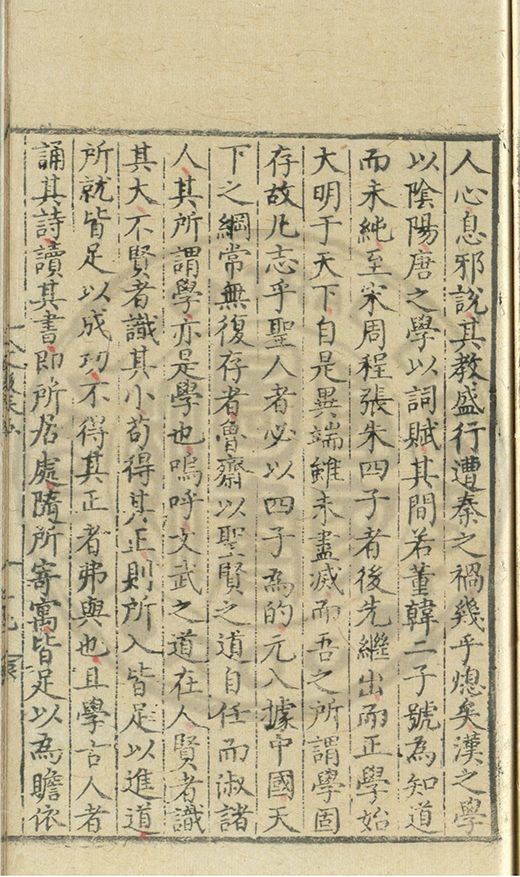 人心息邪說其教盛行遭秦之禍幾乎熄矣漢之學
以陰陽唐之學以詞賦其間若董韓二子號為知道
而未純至宋周程張朱四子者後先繼出而正學始
大明于天下自是異端雖未盡滅而吾之所謂學固
存故凡志乎聖人者必以四子為的元入據中國天
下之綱常無復存者魯齋以聖賢之道自任而淑諸
人其所謂學亦是學也嗚呼文武之道在人賢者識
其大不賢者識其小苟得其正則所入皆足以進道
所就皆足以成功不得其正者弗與也且學古人者
誦其詩讀其書即所居處隨所寄寓皆足以為瞻依